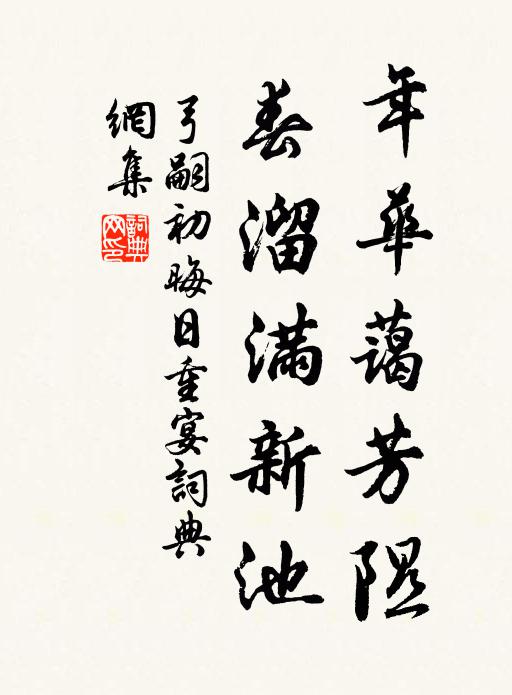 年華藹芳隰
春溜滿新池
弓嗣初晦日重宴詞典
網集
詞典網印